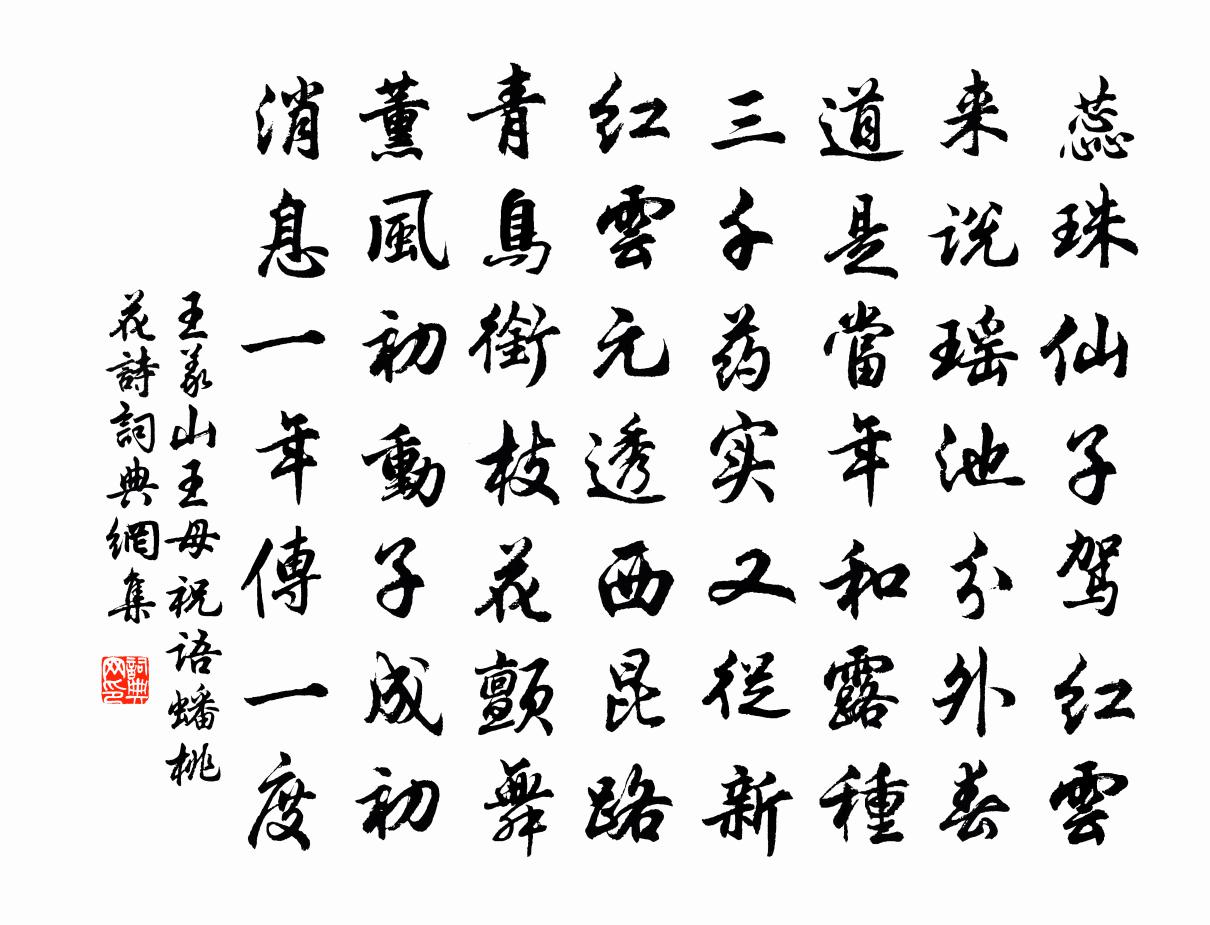 蕊珠仙子驾红雲
来说瑶池分外春
道是當年和露種
三千药实又從新
红雲元透西昆路
青鳥銜枝花颤舞
薰風初動子成初
消息一年傳一度
王義山王母祝语蟠桃
花詩詞典網集
詞典网印